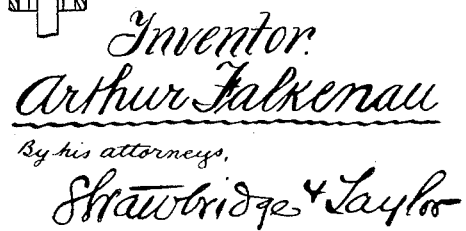 Inventor.
Arthur Falkenau
By his attorneys,
Strawbridge & Taylor